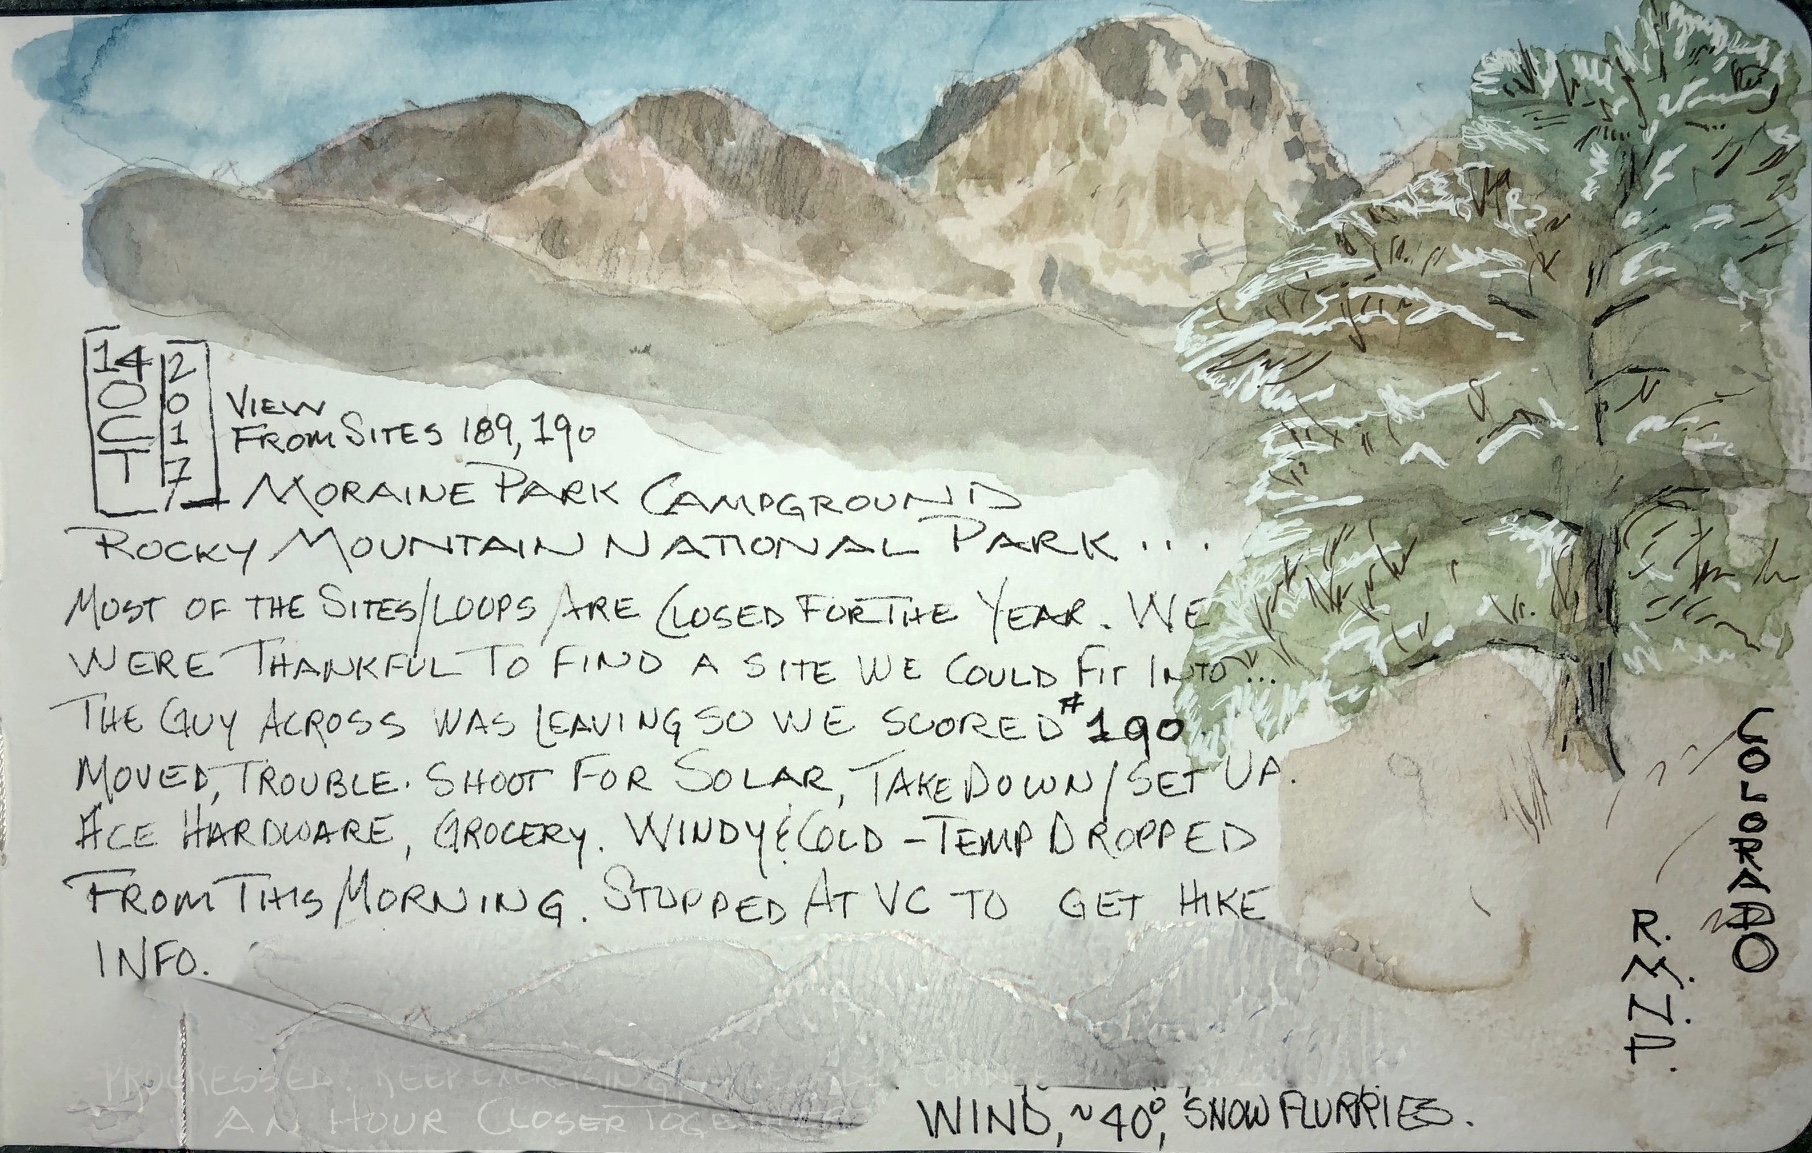 14 OCT 2017
VIEW
FROM SITES 189, 190
MORAINE PARK CAMPGROUND
ROCKY MOUNTAIN NATIONAL PARK...
MOST OF THE SITES/LOOPS ARE CLOSED FOR THE YEAR. WE
WERE THANKFUL TO FIND A SITE WE COULD FIT INTO...
THE GUY ACROSS WAS LEAVING SO WE SCORED #190.
MOVED, TROUBLE. SHOOT FOR SOLAR, TAKE DOWN/SET UP.
ACE HARDWARE, GROCERY. WINDY & COLD - TEMP DROPPED
FROM THIS MORNING. STOPPED AT VC TO GET HIKE
INFO.
PROGRESSED. KEEP EXERCISING
AN HOUR CLOSER TOGETHER
WIND, ~40°, SNOW FLURRIES.
R.M.N.P.
COLORADO